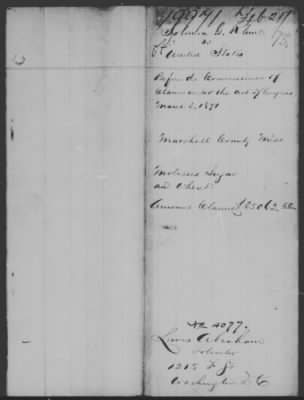 19971 Feb 24/73
vs
United States
Before the Commissioners of
Claims under the Act of Congress
March 3, 1871
Marshall County Miss
Molasses Sugar
and
Amount Claimed $
No 4077.
Lewis Abraham
Solicitor
1215 F St
Washington D C